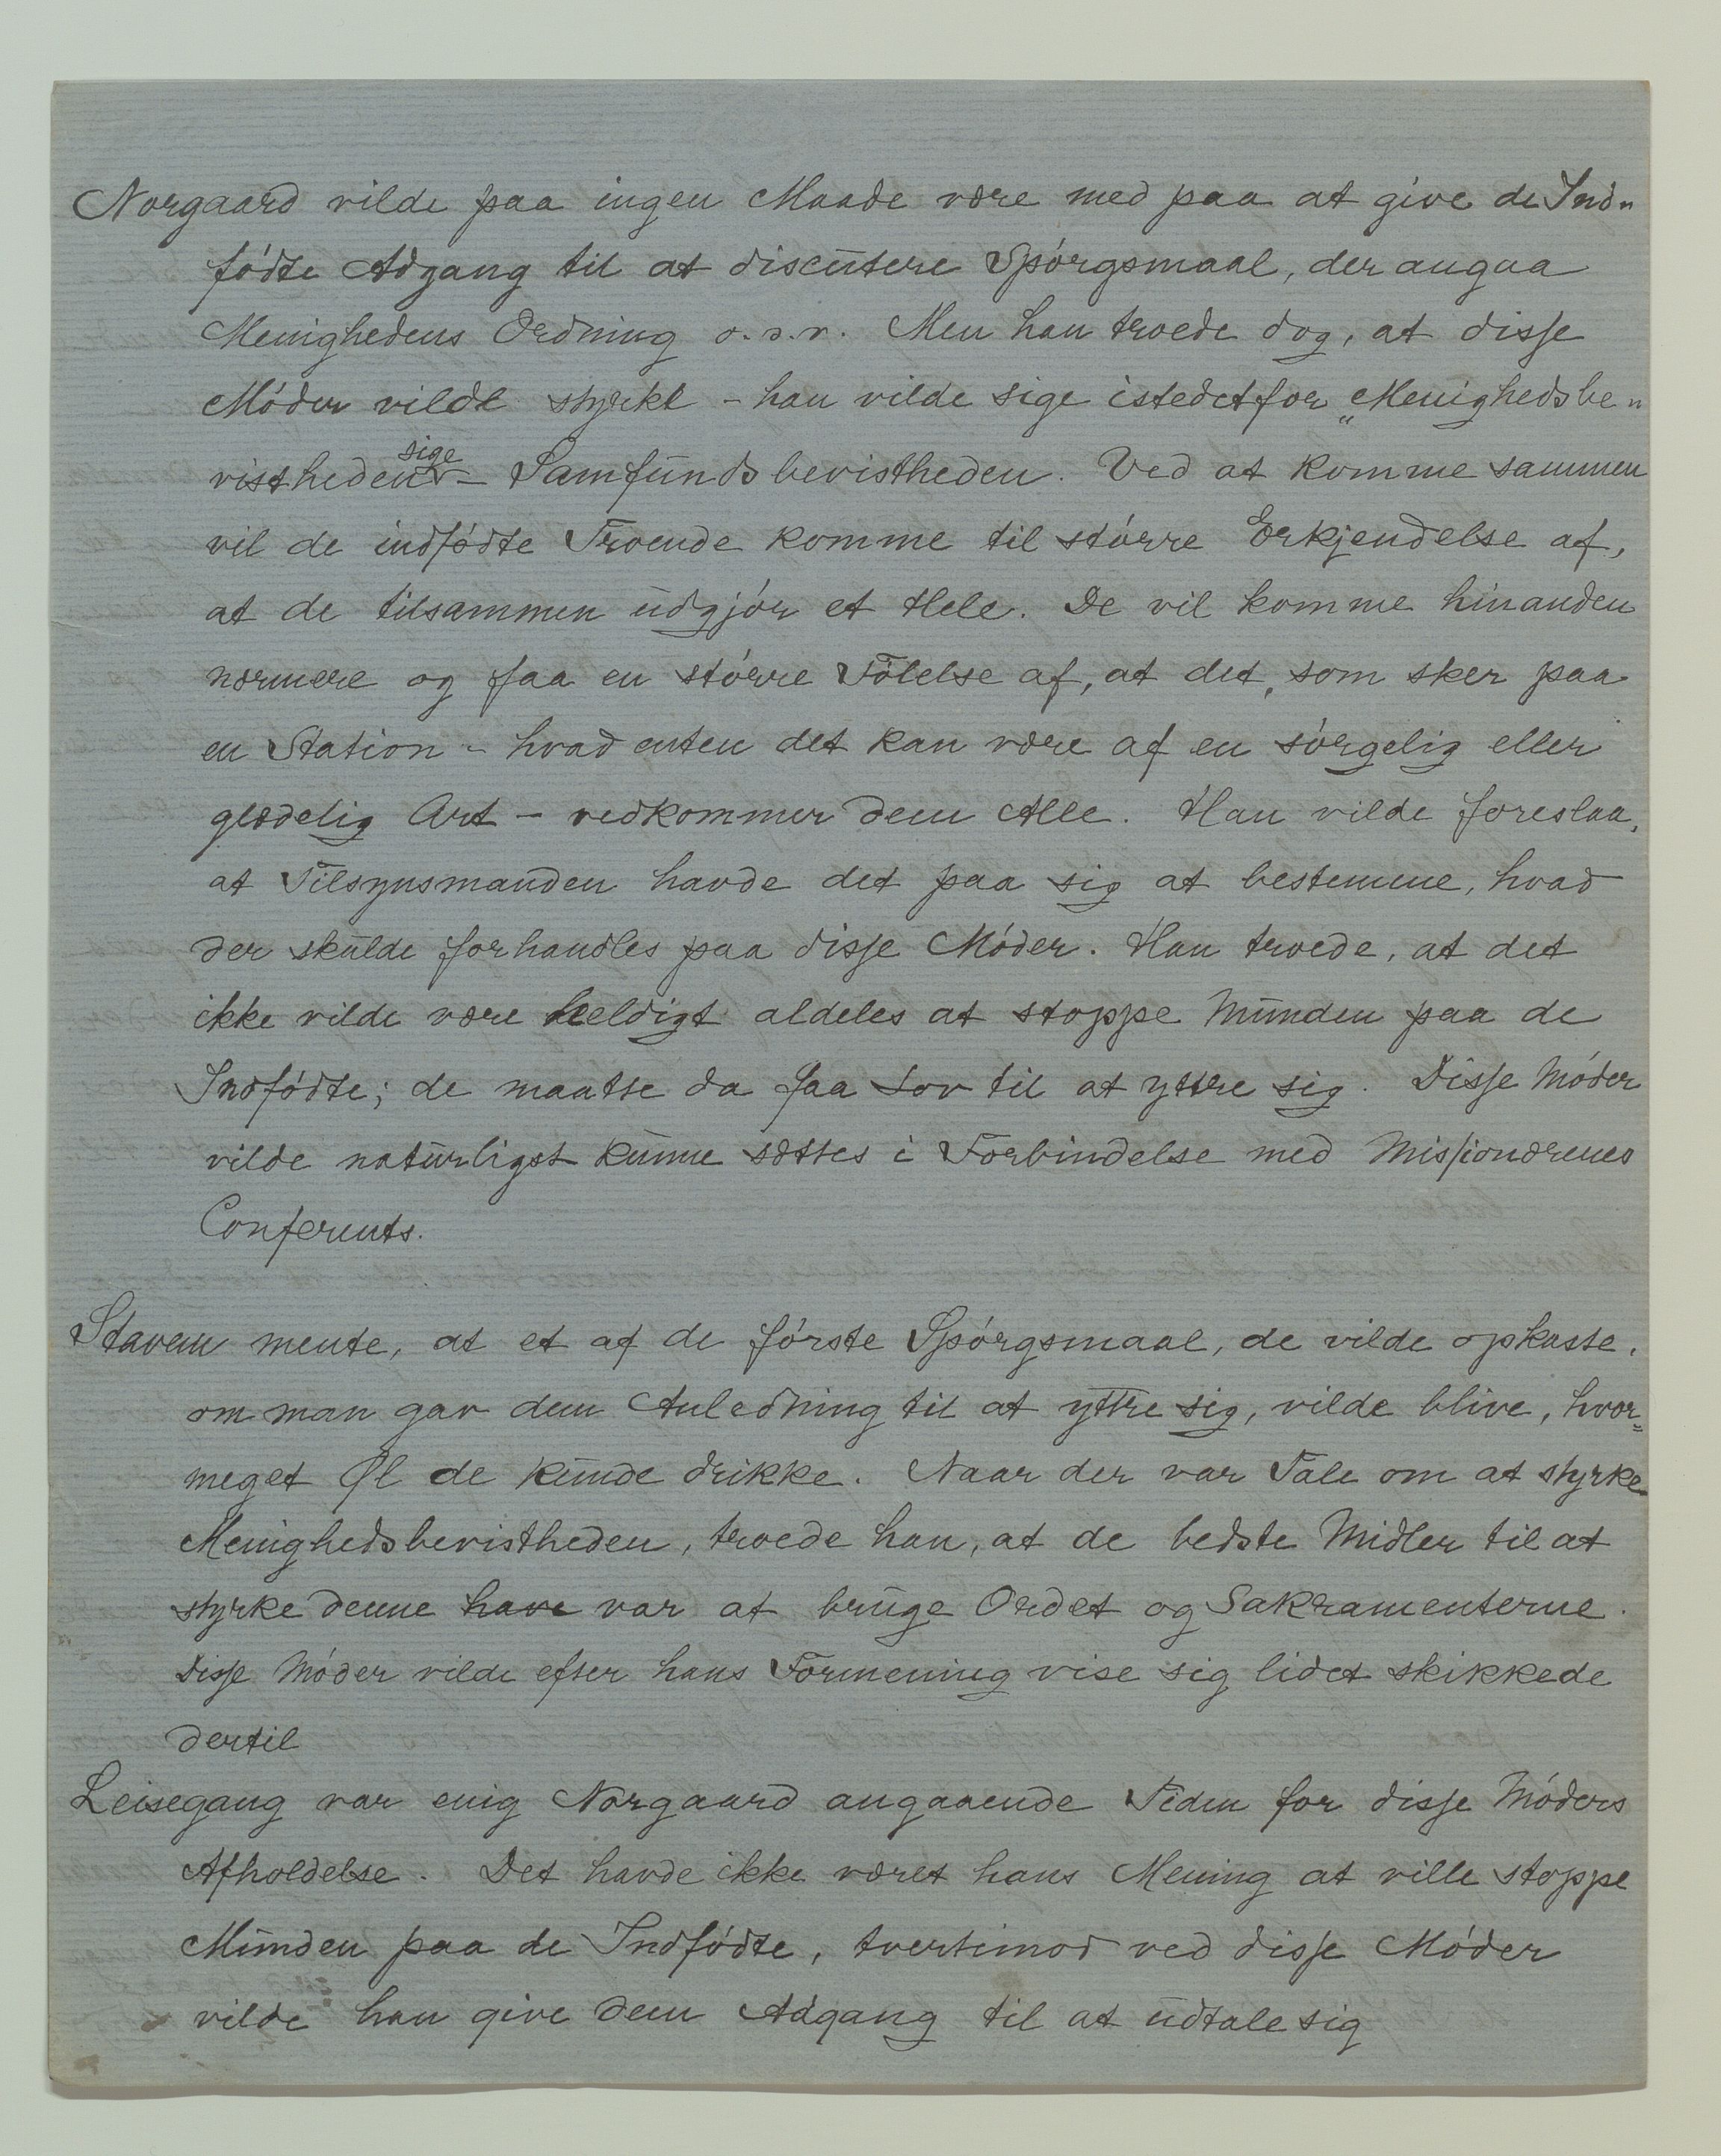 Norgaard vilde paa ingen Maade være med paa at give de Ind„
födte Adgang til at discutere Spörgsmaal, der angaa
Menighedens Ordning o.s.v. Men han troede dog, at disse
Möder vilde styrke – han vilde sige istedetfor „Menighedsbe„
vistheden sige – Samfundsbevistheden. Ved at komme sammen
vil de indfödte Troende komme til större Erkjendelse af,
at de tilsammen udgjör et Hele. De vil komme hinanden
nærmere og faa en större Fölelse af, at det, som sker paa
en Station – hvad enten det kan være af en sörgelig eller
glædelig Art – vedkommer dem Alle. Han vilde foreslaa,
at Tilsynsmanden havde det paa sig at bestemme, hvad
der skulde forhandles paa disse Möder. Han troede, at det
ikke vilde være heldigt aldeles at stoppe Munden paa de
Indfödte; de maatte da faa Lov til at yttre sig. Disse Möder
vilde naturligst kunne sættes i Forbindelse med Missionærenes
Conferents.
Stavem mente, at et af de förste Spörgsmaal, de vilde opkaste,
om man gav dem Anledning til at yttre sig, vilde blive, hvor=
meget Øl de kunde drikke. Naar der var Tale om at styrke
Menighedsbevistheden, troede han, at de bedste Midler til at
styrke denne have var at bruge Ordet og Sakramenterne.
Disse Möder vilde efter hans Formening vise sig lidet skikkede
dertil
Leisegang var enig Norgaard angaaende Tiden for disse Möders
Afholdelse. Det havde ikke været hans Mening at ville stoppe
Munden paa de Indfödte, tvertimod ved disse Möder
vilde han give dem Adgang til at udtale sig